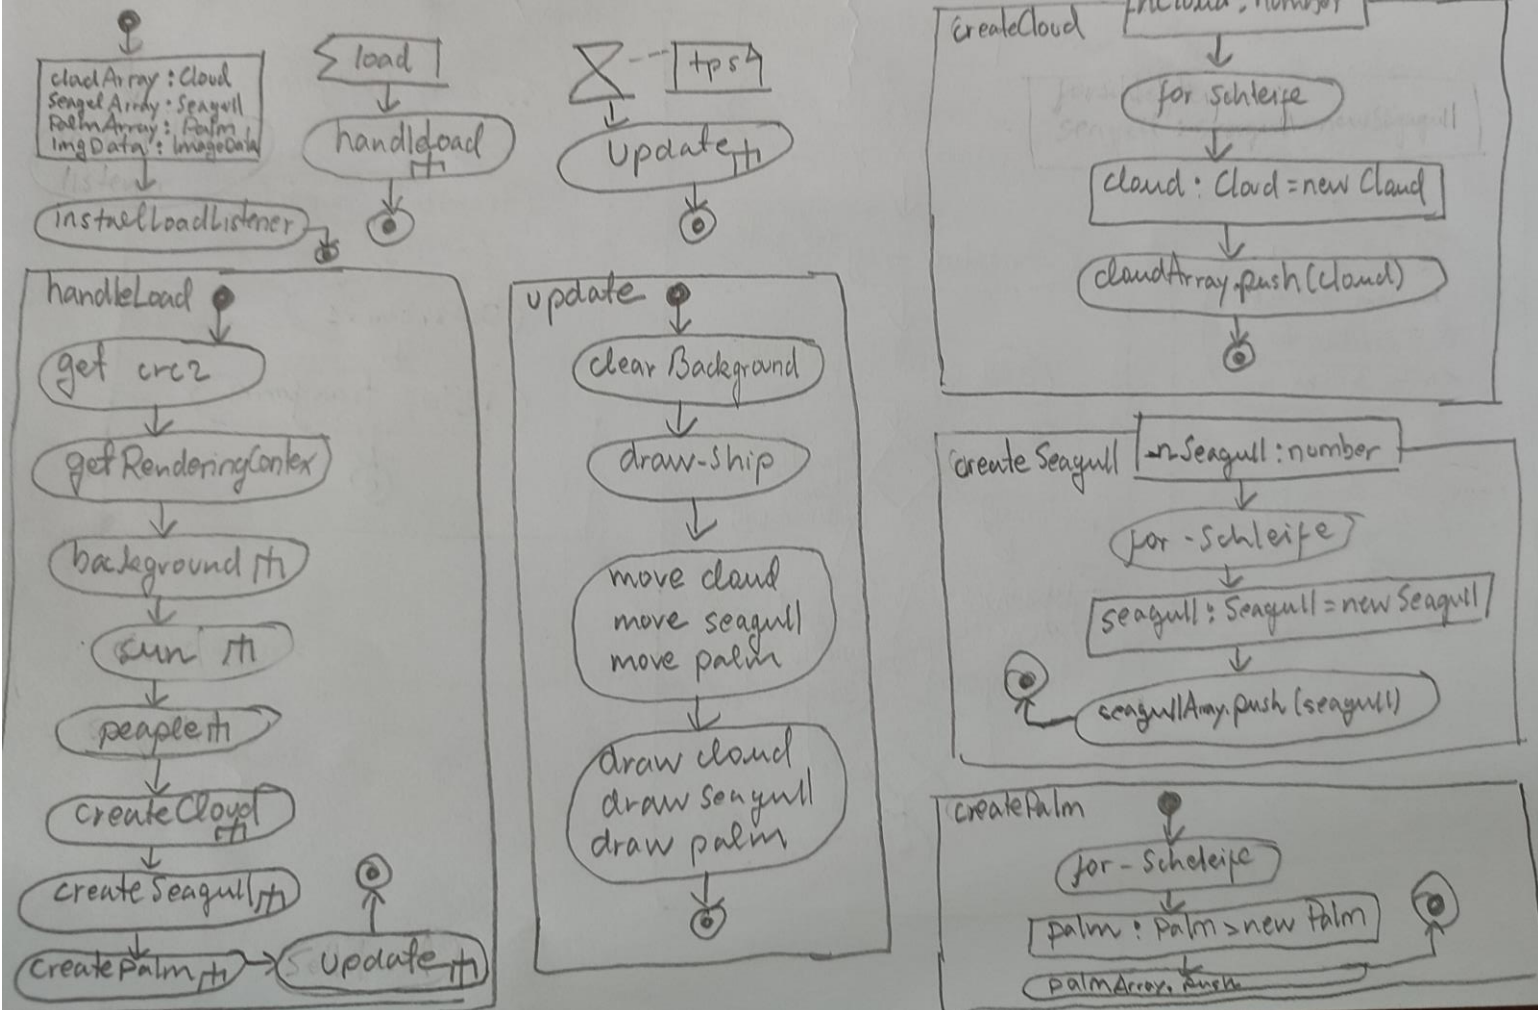 cladArray : Cloud
SeagelArray : Seagull
PalmArray : Palm
imgData : ImageData
installLoadListener
load
handleLoad
tps4
update
handleLoad
get crc2
getRenderingContex
background
sun
peaple
createCloud
createSeagull
createPalm
update
update
clear Background
draw-ship
move cloud
move seagull
move palm
draw cloud
draw seagull
draw palm
createCloud
nCloud : number
for schleife
cloud : Cloud = new Cloud
cloudArray.push(cloud)
createSeagull
nSeagull : number
for - Schleife
seagull : Seagull = new Seagull
seagullArray.push(seagull)
createPalm
for - Scheleife
palm : Palm = new Palm
palmArray.push